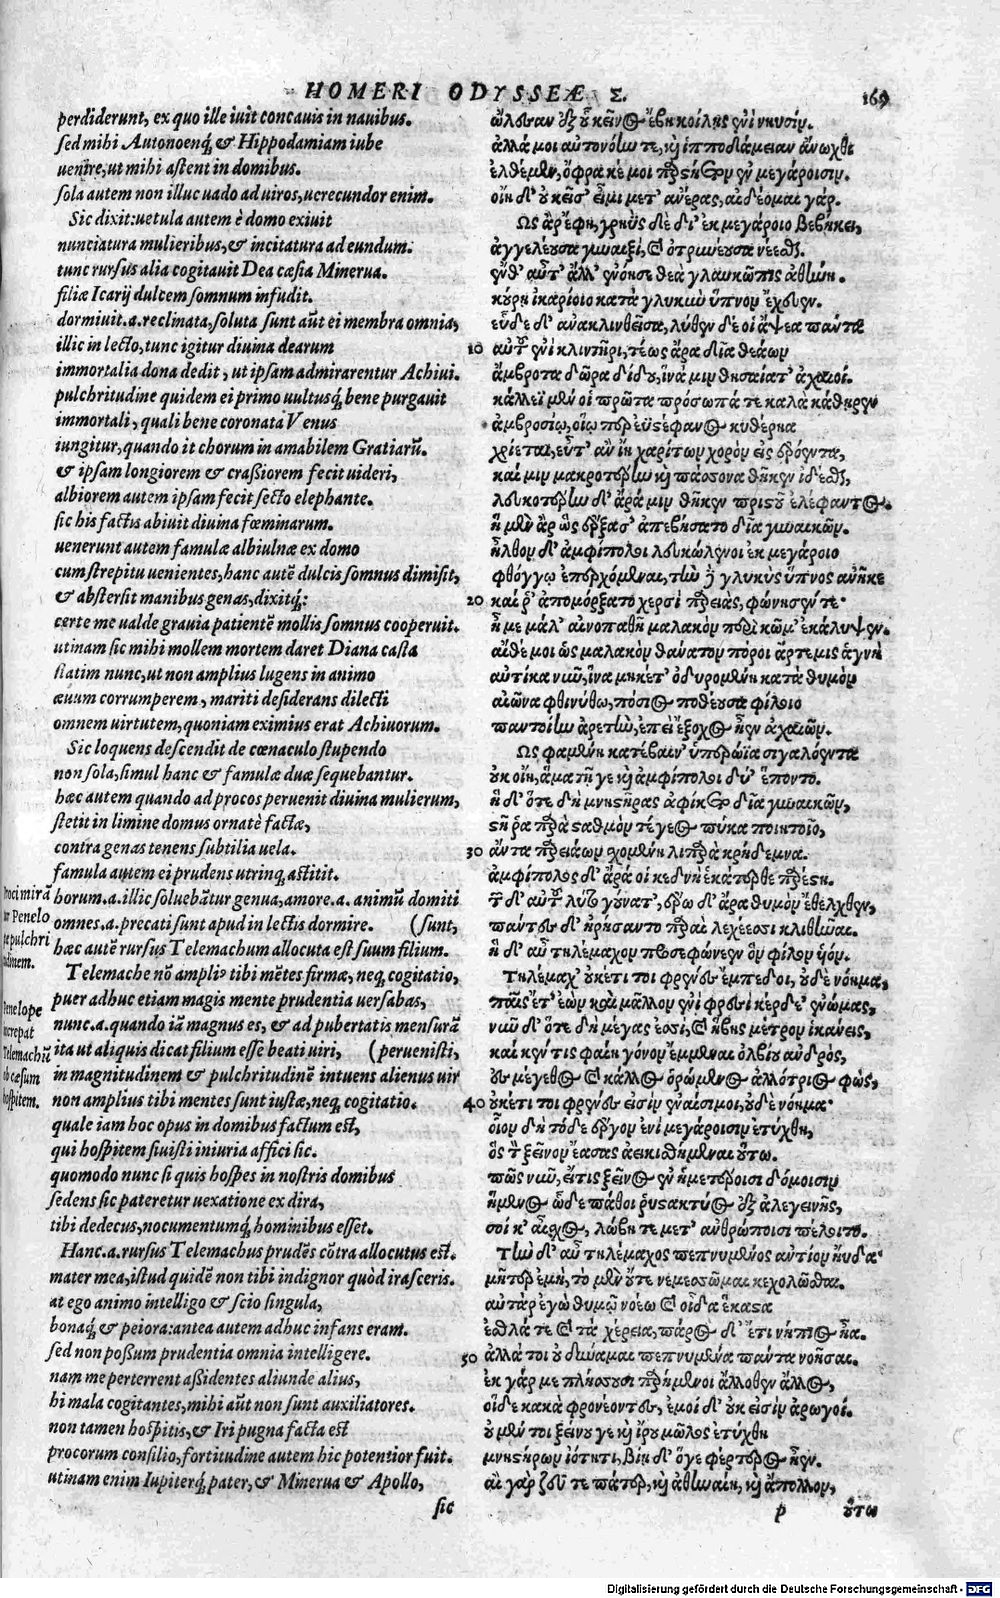 HOMERI ODYSSEÆ Σ.
169
perdiderunt, ex quo ille iuit concauis in nauibus.
sed mihi Autonoenq́; & Hippodamiam iube
uenire, ut mihi astent in domibus.
sola autem non illuc uado ad uiros, uerecundor enim.
Sic dixit: uetula autem è domo exiuit
nunciatura mulieribus, & incitatura ad eundum.
tunc rursus alia cogitauit Dea cæsia Minerua.
filiæ Icarij dulcem somnum infudit.
dormiuit.a.reclinata, soluta sunt aũt ei membra omnia,
illic in lecto, tunc igitur diuina dearum
immortalia dona dedit, ut ipsam admirarentur Achiui.
pulchritudine quidem ei primo uultusq́; bene purgauit
immortali, quali bene coronata Venus
iungitur, quando it chorum in amabilem Gratiarũ.
& ipsam longiorem & craßiorem fecit uideri,
albiorem autem ipsam fecit secto elephante.
sic his factis abiuit diuina fœminarum.
uenerunt autem famulæ albiulnæ ex domo
cum strepitu uenientes, hanc autẽ dulcis somnus dimisit,
& abstersit manibus genas, dixitq́;:
certe me ualde grauia patientẽ mollis somnus cooperuit.
utinam sic mihi mollem mortem daret Diana casta
statim nunc, ut non amplius lugens in animo
æuum corrumperem, mariti desiderans dilecti
omnem uirtutem, quoniam eximius erat Achiuorum.
Sic loquens descendit de cœnaculo stupendo
non sola, simul hanc & famulæ duæ sequebantur.
hæc autem quando ad procos peruenit diuina mulierum,
stetit in limine domus ornatè factæ,
contra genas tenens subtilia uela.
famula autem ei prudens utrinq; astitit.
horum.a.illic soluebãtur genua, amore.a. animũ domiti
omnes.a.precati sunt apud in lectis dormire. (sunt,
hæc autẽ rursus Telemachum allocuta est suum filium.
Telemache nõ ampliꝰ tibi mẽtes firmæ, neq; cogitatio,
puer adhuc etiam magis mente prudentia uersabas,
nunc.a.quando iã magnus es, & ad pubertatis mensurã
ita ut aliquis dicat filium esse beati uiri, (peruenisti,
in magnitudinem & pulchritudinẽ intuens alienus uir
non amplius tibi mentes sunt iustæ, neq; cogitatio.
quale iam hoc opus in domibus factum est,
qui hospitem siuisti iniuria affici sic.
quomodo nunc si quis hospes in nostris domibus
sedens sic pateretur uexatione ex dira,
tibi dedecus, nocumentumq́; hominibus esset.
Hanc.a.rursus Telemachus prudẽs cõtra allocutus est.
mater mea, istud quidẽ non tibi indignor quòd irasceris.
at ego animo intelligo & scio singula,
bonaq́; & peiora: antea autem adhuc infans eram.
sed non poßum prudentia omnia intelligere.
nam me perterrent aßidentes aliunde alius,
hi mala cogitantes, mihi aũt non sunt auxiliatores.
non tamen hospitis, & Iri pugna facta est
procorum consilio, fortitudine autem hic potentior fuit.
utinam enim Iupiterq́; pater, & Minerua & Apollo,
sic
mirã
Penelo
pulchri
dinem.
Penelope
increpat
Telemachũ
ob cæsum
hospitem.
ὤλεσαν ἐξ οὗ κεῖνος ἔβη κοίλης ἐνὶ νηυσίν.
ἀλλά μοι αὐτονόην τε, καὶ ἱπποδάμειαν ἄνωχθι
ἐλθέμεν, ὄφρα κέ μοι παρστήετον ἐν μεγάροισιν.
οἴη δ' οὐκ εἶσ' εἶμι μετ' ἀνέρας, αἰδέομαι γάρ.
Ὣς ἄρ' ἔφη, γρηῢς δὲ δι' ἐκ μεγάροιο βεβήκει,
ἀγγελέουσα γυναιξί, καὶ ὀτρυνέουσα νέεσθαι.
ἔνθ' αὖτ' ἄλλ' ἐνόησε θεὰ γλαυκῶπις ἀθήνη.
κούρῃ ἰκαρίοιο κατὰ γλυκὺν ὕπνον ἔχευεν.
εὗδε δ' ἀνακλινθεῖσα, λύθεν δέ οἱ ἅψεα πάντα
10 αὐτοῦ ἐνὶ κλιντῆρι, τέως ἄρα δῖα θεάων
ἄμβροτα δῶρα δίδου, ἵνα μιν θησαίατ' ἀχαιοί.
κάλλεϊ μέν οἱ πρῶτα πρόσωπά τε καλὰ κάθηρεν
ἀμβροσίῳ, οἵῳ περ ἐϋστέφανος κυθέρεια
χρίεται, εὖτ' ἂν ἴῃ χαρίτων χορὸν εἰς ἐρόεντα,
καί μιν μακροτέρην καὶ πάσσονα θῆκεν ἰδέσθαι,
λευκοτέρην δ' ἄρα μιν θῆκεν πριστοῦ ἐλέφαντος.
ἡ μὲν ἂρ ὣς ἔρξασ' ἀπεβήσατο δῖα γυναικῶν.
ἦλθον δ' ἀμφίπολοι λευκώλενοι ἐκ μεγάροιο
φθόγγῳ ἐπερχόμεναι, τὴν δὲ γλυκὺς ὕπνος ἀνῆκε
20 καί ῥ' ἀπομόρξατο χερσὶ παρειάς, φώνησέν τε·
ἦ με μάλ' αἰνοπαθῆ μαλακὸν περὶ κῶμ' ἐκάλυψεν.
αἴθέ μοι ὣς μαλακὸν θάνατον πόροι ἄρτεμις ἁγνὴ
αὐτίκα νῦν, ἵνα μηκέτ' ὀδυρομένη κατὰ θυμὸν
αἰῶνα φθινύθω, πόσιος ποθέουσα φίλοιο
παντοίην ἀρετήν, ἐπεὶ ἔξοχος ἦεν ἀχαιῶν.
Ὣς φαμένη κατέβαιν' ὑπερώϊα σιγαλόεντα
οὐκ οἴη, ἅμα τῇ γε καὶ ἀμφίπολοι δύ' ἕποντο.
ἡ δ' ὅτε δὴ μνηστῆρας ἀφίκετο δῖα γυναικῶν,
στῆ ῥα παρὰ σταθμὸν τέγεος πύκα ποιητοῖο,
30 ἄντα παρειάων σχομένη λιπαρὰ κρήδεμνα.
ἀμφίπολος δ' ἄρά οἱ κεδνὴ ἑκάτερθε παρέστη.
τῶν δ' αὐτοῦ λύτο γούνατ', ἔρῳ δ' ἄρα θυμὸν ἔθελχθεν,
πάντες δ' ἠρήσαντο παραὶ λεχέεσσι κλιθῆναι.
ἡ δ' αὖ τηλέμαχον προσεφώνεεν ὃν φίλον υἱόν.
Τηλέμαχ' οὐκέτι τοι φρένες ἔμπεδοι, οὐδὲ νόημα,
παῖς ἔτ' ἐὼν καὶ μᾶλλον ἐνὶ φρεσὶ κέρδε' ἐνώμας,
νῦν δ' ὅτε δὴ μέγας ἐσσί, καὶ ἥβης μέτρον ἱκάνεις,
καί κέν τις φαίη γόνον ἔμμεναι ὀλβίου ἀνδρός,
ἐς μέγεθος καὶ κάλλος ὁρώμενος ἀλλότριος φώς,
40 οὐκέτι τοι φρένες εἰσὶν ἐναίσιμοι, οὐδὲ νόημα·
οἷον δὴ τόδε ἔργον ἐνὶ μεγάροισιν ἐτύχθη,
ὃς τὸν ξεῖνον ἔασας ἀεικισθήμεναι οὕτω.
πῶς νῦν, εἴτις ξεῖνος ἐν ἡμετέροισι δόμοισιν
ἥμενος ὧδε πάθοι ῥυστακτύος ἐξ ἀλεγεινῆς,
σοί κ' αἶσχος, λώβη τε μετ' ἀνθρώποισι πέλοιτο.
Τὴν δ' αὖ τηλέμαχος πεπνυμένος ἀντίον ηὔδα·
μῆτερ ἐμή, τὸ μὲν οὔτε νεμεσσῶμαι κεχολῶσθαι.
αὐτὰρ ἐγὼ θυμῷ νοέω καὶ οἶδα ἕκαστα
ἐσθλά τε καὶ τὰ χέρεια, πάρος δ' ἔτι νήπιος ἦα.
50 ἀλλά τοι οὐ δύναμαι πεπνυμένα πάντα νοῆσαι.
ἐκ γάρ με πλήσσουσι παρήμενοι ἄλλοθεν ἄλλος,
οἵδε κακὰ φρονέοντες, ἐμοὶ δ' οὐκ εἰσὶν ἀρωγοί.
οὐ μέν τοι ξείνου γε καὶ ἴρου μῶλος ἐτύχθη
μνηστήρων ἰότητι, βίῃ δ' ὅγε φέρτερος ἦεν.
αἲ γὰρ ζεῦ τε πάτερ, καὶ ἀθηναίη, καὶ ἄπολλον,
p
οὕτω
Digitalisierung gefördert durch die Deutsche Forschungsgemeinschaft - DFG